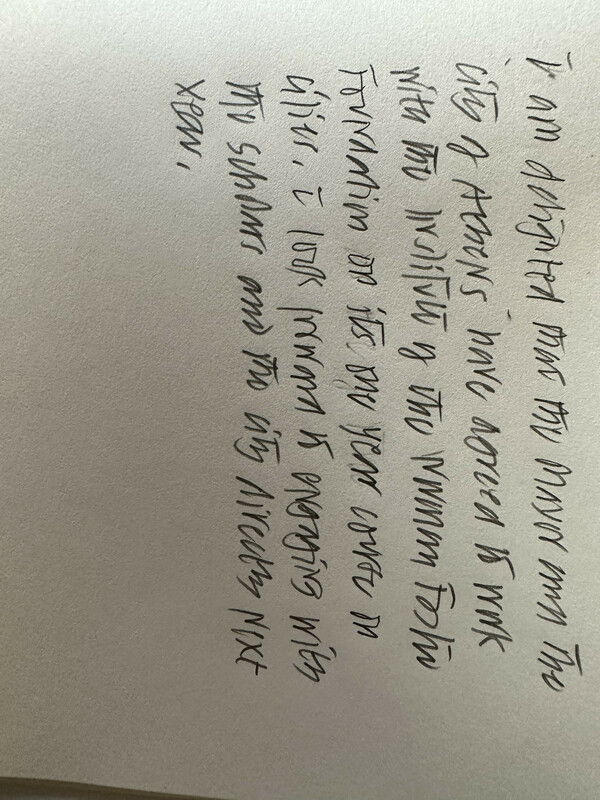 I am delighted that the Mayor and the
City of Athens have agreed to work
with the Institute of the Norman Foster
Foundation on its one year course on
cities. I look forward to engaging with
the scholars and the city directly next
year.